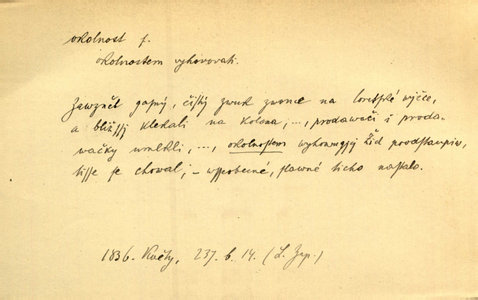 okolnost f.
okolnostem vyhovovati.
Zawzněl gasný, čistý zwuk zwonce na loretské wěžce,
a bližssj klekali na kolena; ..., prodawači i proda-
wačky umlkli, ..., okolnostem wyhowugjcj Žid poodstaupiw,
tisse se chowal; – wsseobecné, slawné ticho nastalo.
1836. Květy, 237. b. 14. (L. )